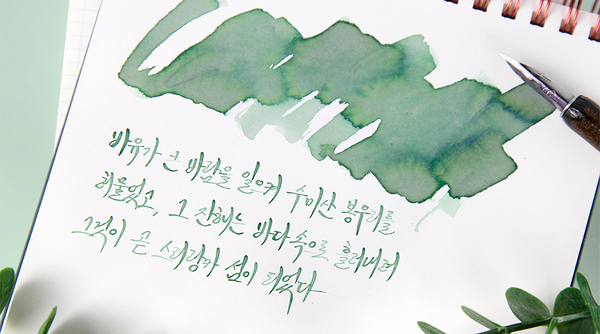 바유가 큰 바람을 일으켜 수미산 봉우리를
허물었고, 그 잔해는 바다속으로 흘러내려
그것이 곧 스리랑카 섬이 되었다